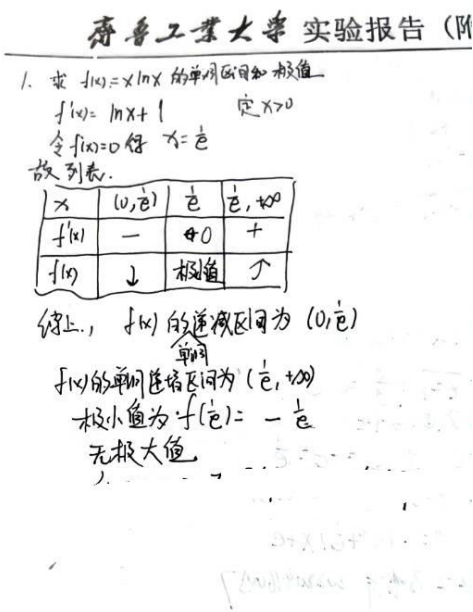 齐鲁工业大学 实验报告 (附
1. 求 f(x)=xlnx 的单调区间和极值
f'(x)= lnx+1 定 x>0
令 f'(x)=0 得 x=1/e
故列表.
x (0,1/e) 1/e 1/e,+∞
f'(x) − 0 +
f(x) ↓ 极小值 ↑
综上, f(x) 的单调递减区间为 (0,1/e)
f(x)的单调递增区间为 (1/e,+∞)
极小值为 f(1/e)= −1/e
无极大值